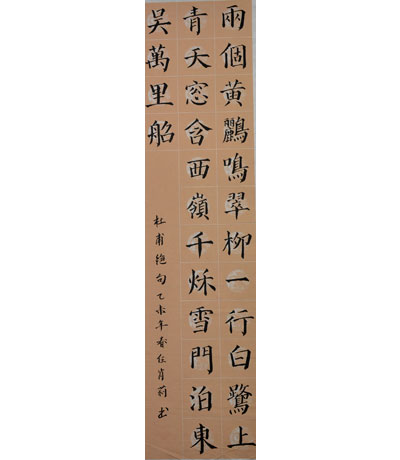 兩個黃鸝鳴翠柳一行白鷺上
青天窓含西嶺千秌雪門泊東
吴萬里船
杜甫絕句乙未年春任肖莉书